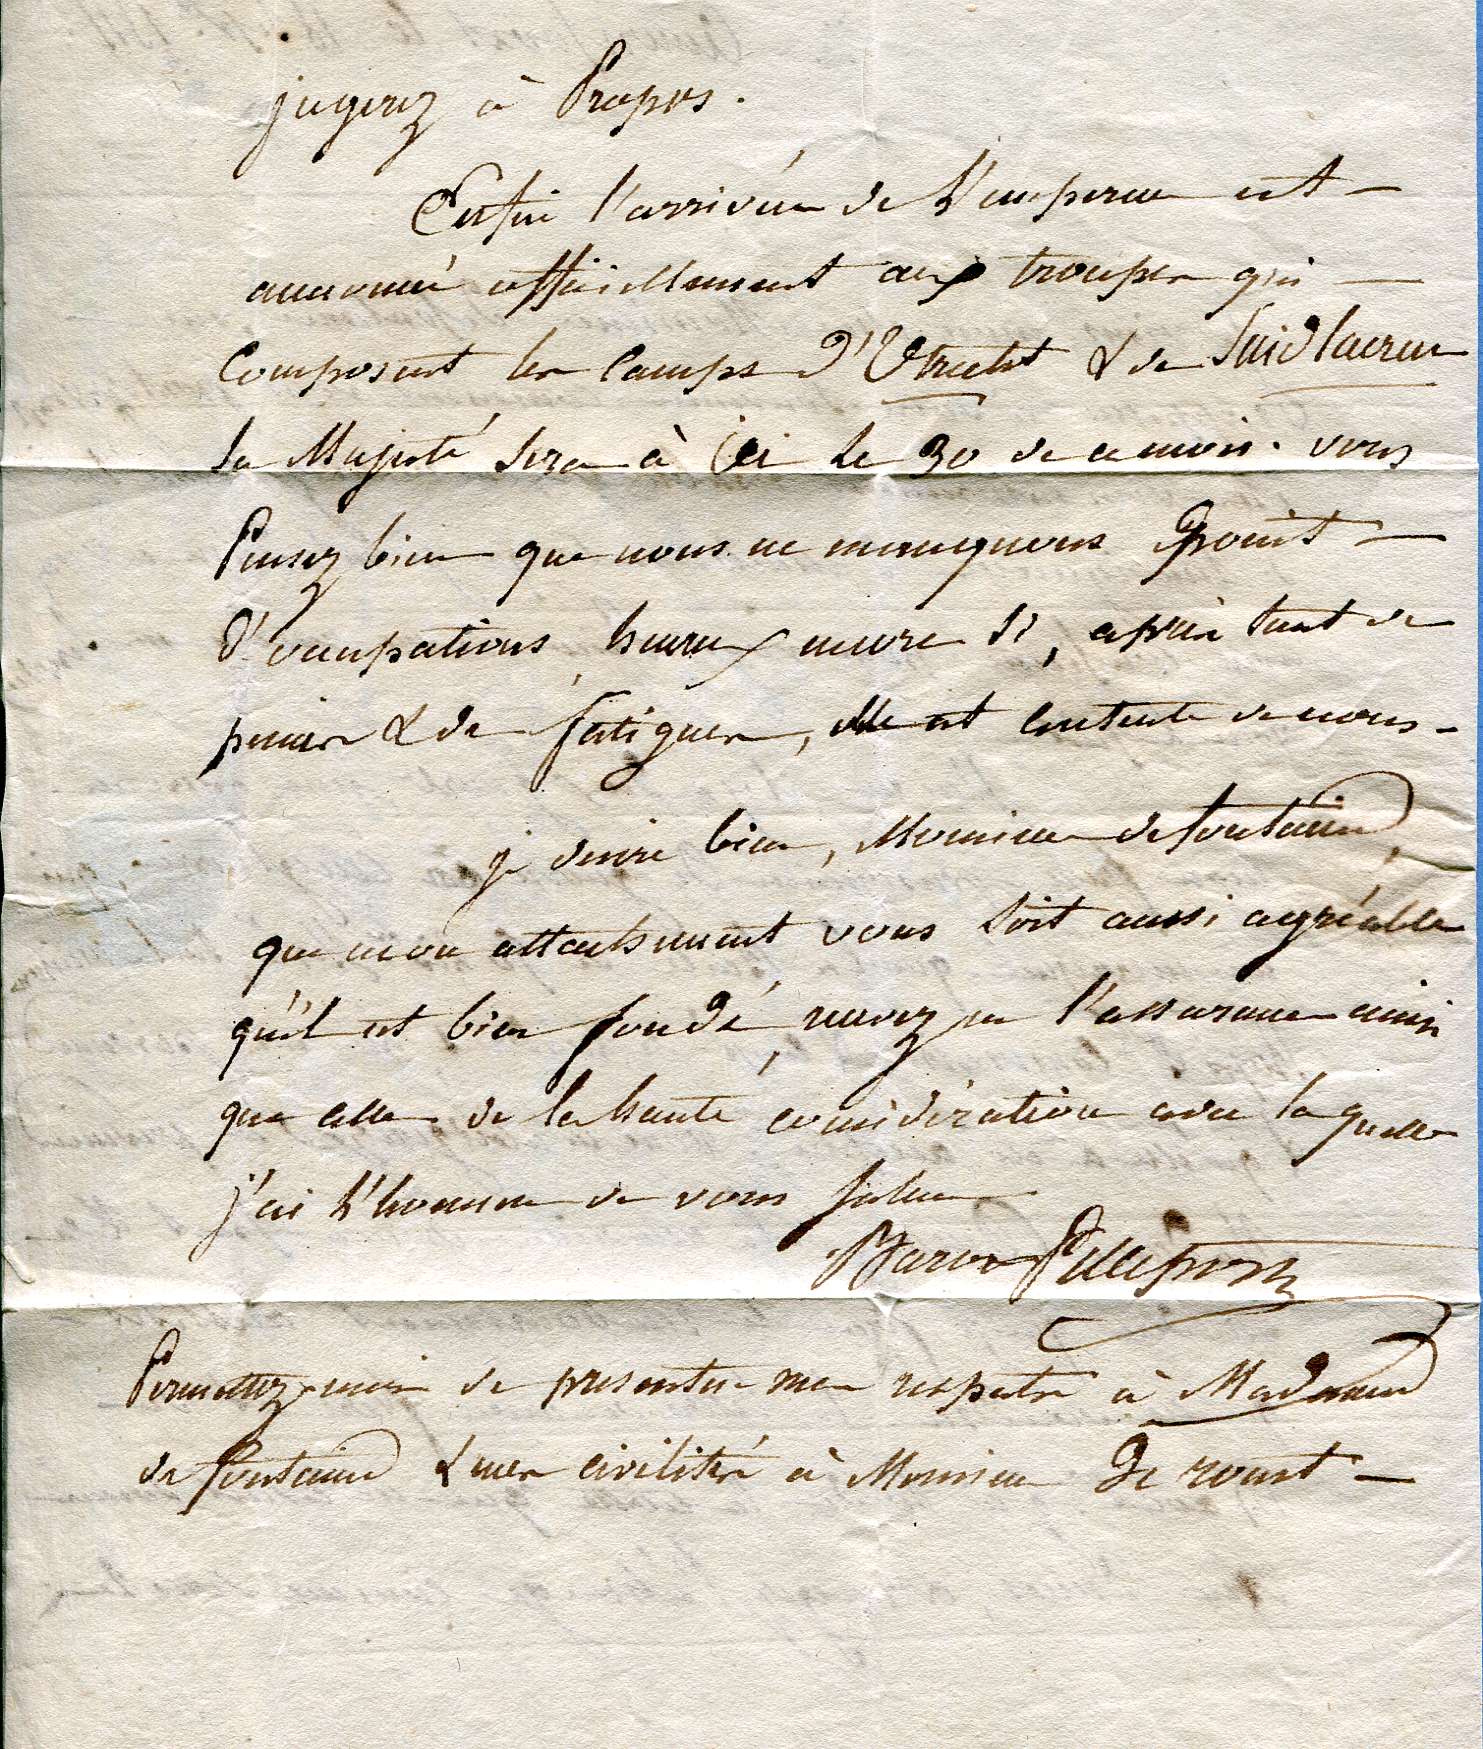 jugerez à Propos.
Enfin l'arrivée de l'empereur est
annoncée officiellement aux troupes qui
Composent les Camps d'Utrecht & de
Sa Majesté sera à ici le 30 de ce mois. vous
Pensez bien que nous ne manquons point
d'occupations, heureux encore si, après tant de
peines & de fatigues, elle est Contente de nous.
je desire bien, Monsieur de fontaine,
que mon attachement vous soit aussi agréable
qu'il est bien fondé, recevez en l'assurance ainsi
que celle de la haute considération avec la quelle
j'ai l'honneur de vous saluer
Baron
Permettez moi de presenter mes respects à Madame
de fontaine & mes civilités à Monsieur De